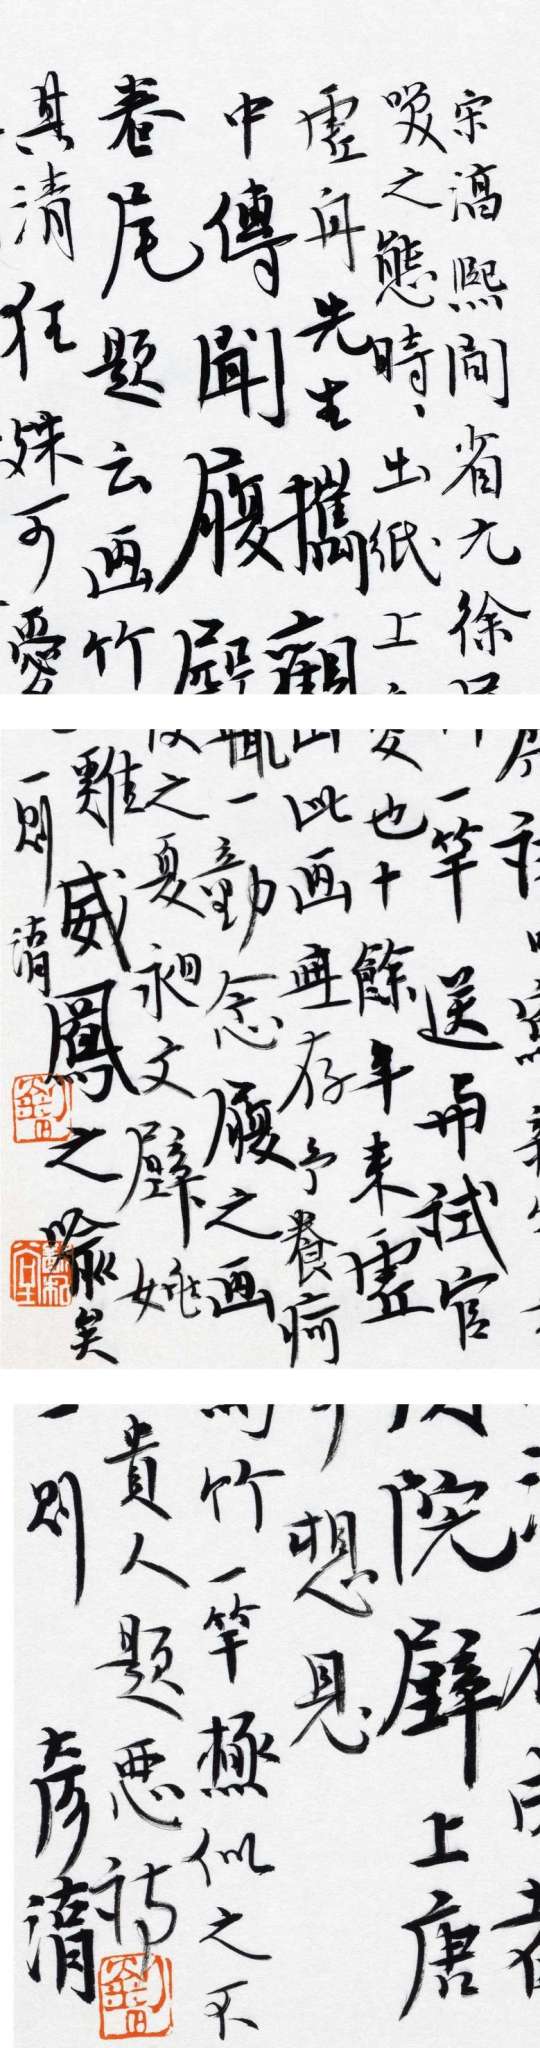 宋淳熙間省元徐
笑之態時、出紙上
虛舟先生攜觀
中傳聞履殿
卷尾題云画竹
其清狂殊可愛
一竿送与試官
也十餘年来虛
此画無存予養病
輒一動念履之画
之夏昶文璧姚
雞威鳳之喻矣
一則
院壁上唐
想見
竹一竿極似之不
貴人題惡詩
一則 彥湇